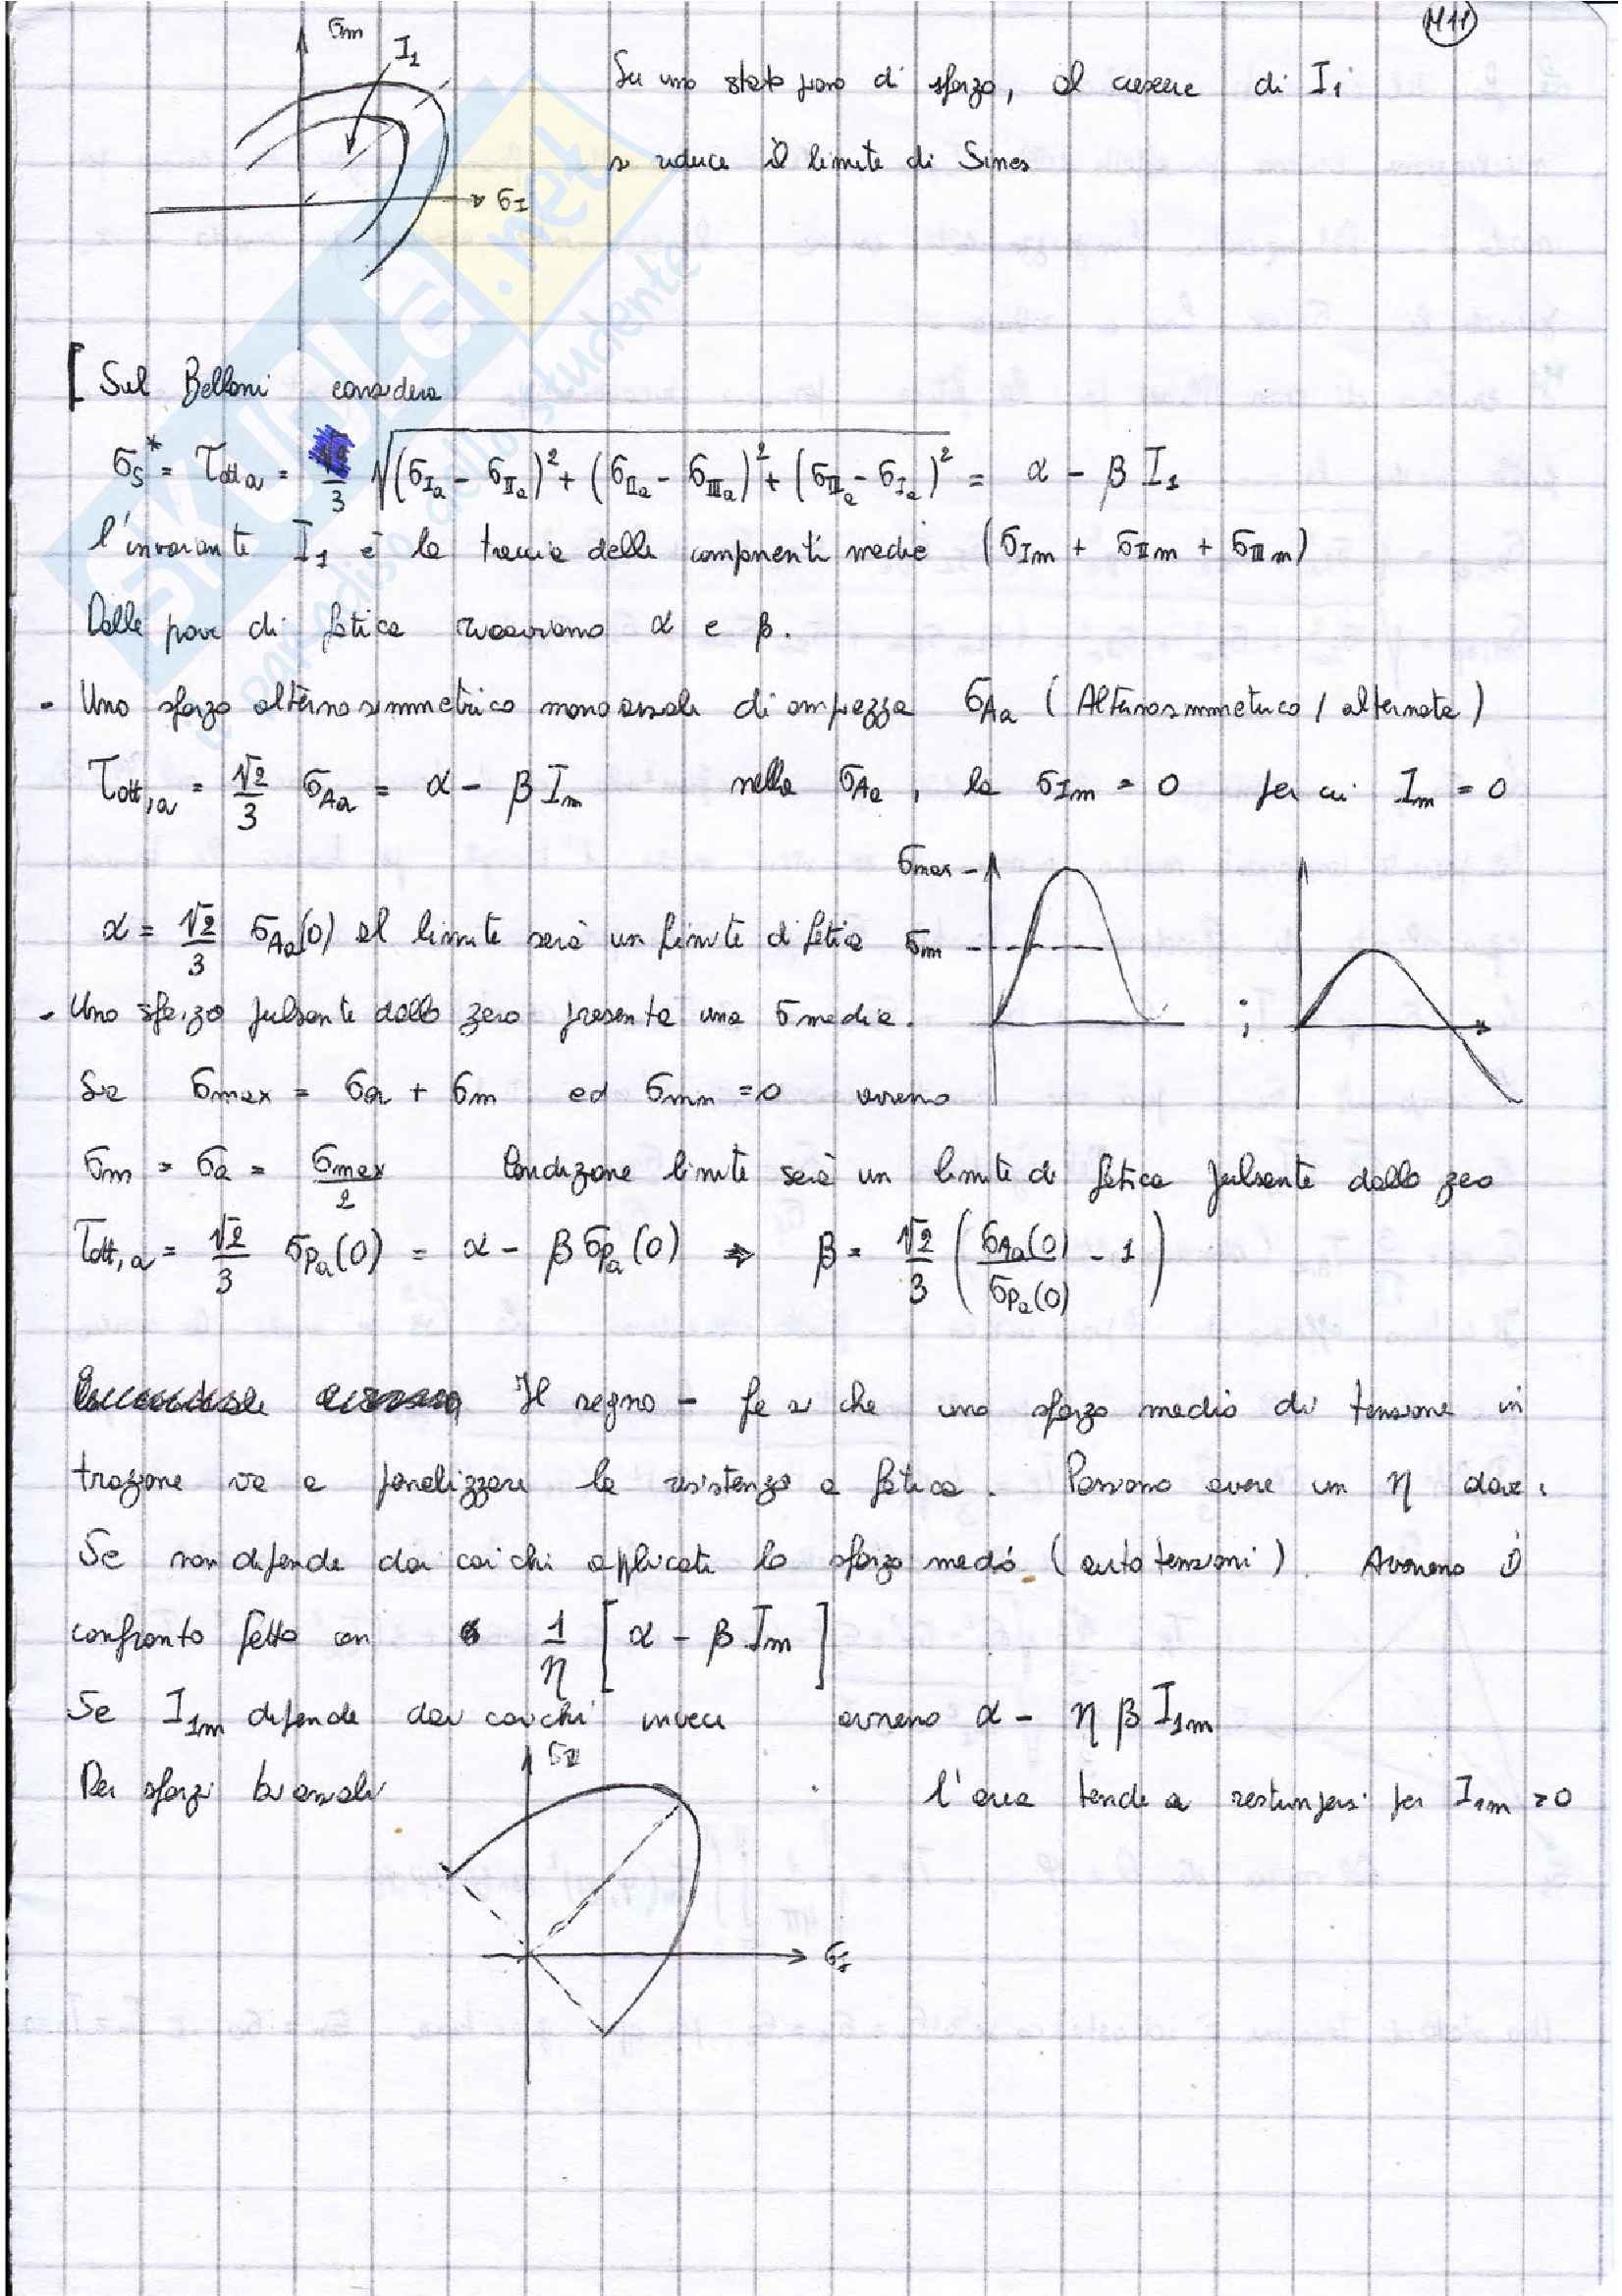 M11
σm
I1
Su uno stato piano di sforzo, al crescere di I1
si riduce il limite di Sines
σI
[ Sul Belloni considera
σS* = τott a = 1/3 √((σIa - σIIa)² + (σIIa - σIIIa)² + (σIIIa - σIa)²) = α - β I1
l'invariante I1 è la traccia delle componenti medie (σIm + σIIm + σIIIm)
Dalle prove di fatica ricaviamo α e β.
- Uno sforzo alternosimmetrico monoassiale di ampiezza σAa (Alternosimmetrico / alternata)
τott,a = √2/3 σAa = α - β Im nella σAa, la σIm = 0 per cui Im = 0
σmax
α = √2/3 σAa(0) al limite sarà un limite di fatica
σm
- Uno sforzo pulsante dallo zero presenta una σ media.
;
Se σmax = σa + σm ed σmin = 0 avremo
σm = σa = σmax/2 Condizione limite sarà un limite di fatica pulsante dallo zero
τott,a = √2/3 σPa(0) = α - β σPa(0) ⇒ β = √2/3 (σAa(0)/σPa(0) - 1)
Il segno - fa sì che uno sforzo medio di tensione in
trazione va a penalizzare la resistenza a fatica. Possiamo avere un η dove:
Se non dipende dai carichi applicati lo sforzo medio (autotensioni). Avremo il
confronto fatto con 1/η [α - β Im]
Se I1m dipende dai carichi invece avremo α - η β I1m
σII
Per sforzi biassiali l'area tende a restringersi per I1m > 0
σI
SKUOLA.net
paradiso dello studente